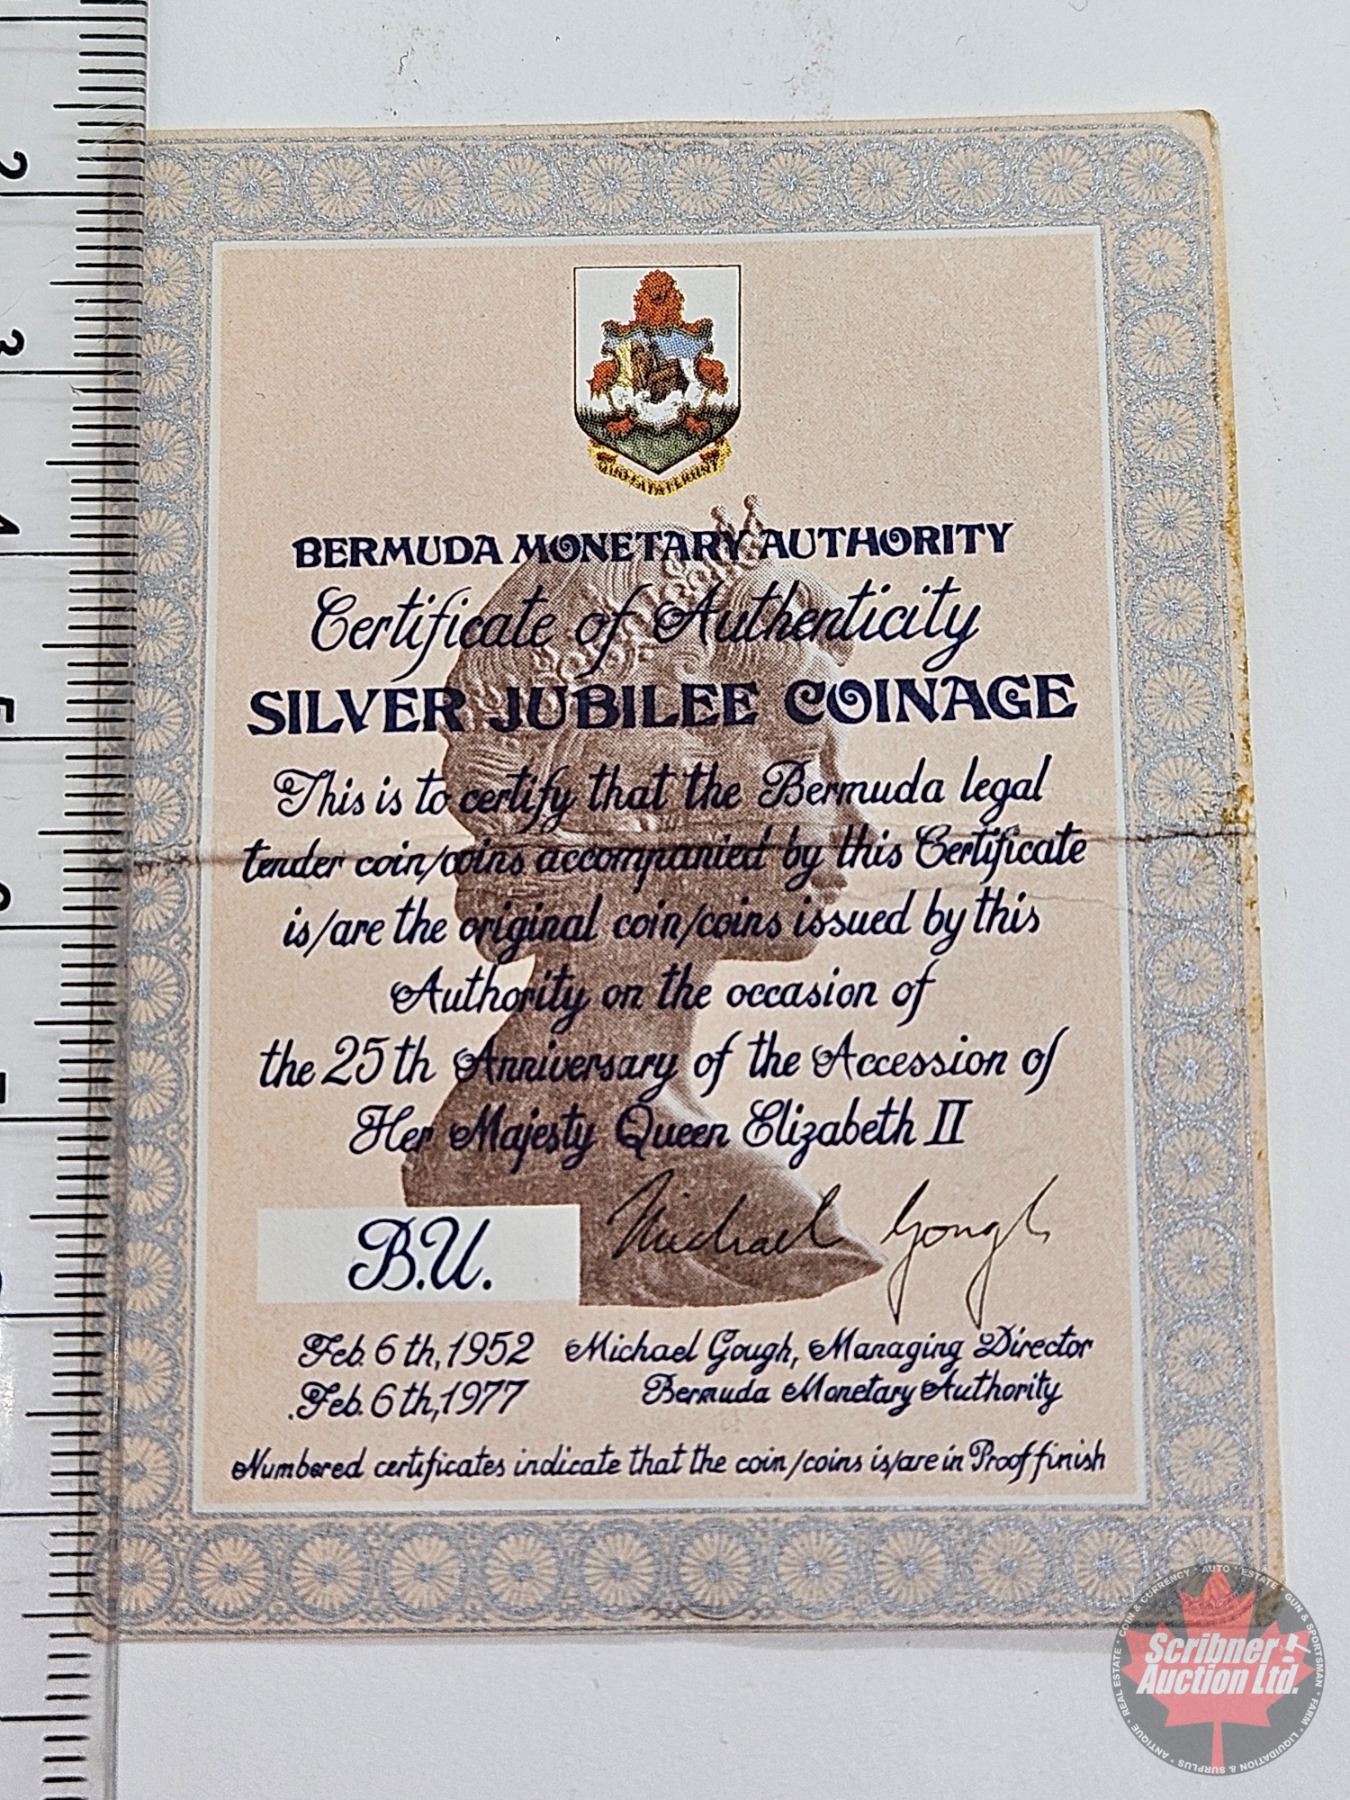 2
3
4
5
6
7
QUO FATA FERUNT
BERMUDA MONETARY AUTHORITY
Certificate of Authenticity
SILVER JUBILEE COINAGE
This is to certify that the Bermuda legal
tender coin/coins accompanied by this Certificate
is/are the original coin/coins issued by this
Authority on the occasion of
the 25th Anniversary of the Accession of
Her Majesty Queen Elizabeth II
B.U.
Michael Gough
Feb. 6th, 1952 Michael Gough, Managing Director
Feb. 6th, 1977 Bermuda Monetary Authority
Numbered certificates indicate that the coin/coins is/are in Proof finish
Scribner
Auction Ltd.
COIN & CURRENCY • AUTO • ESTATE • GUN & SPORTSMAN • FARM • LIQUIDATION & SURPLUS • ANTIQUE • REAL ESTATE